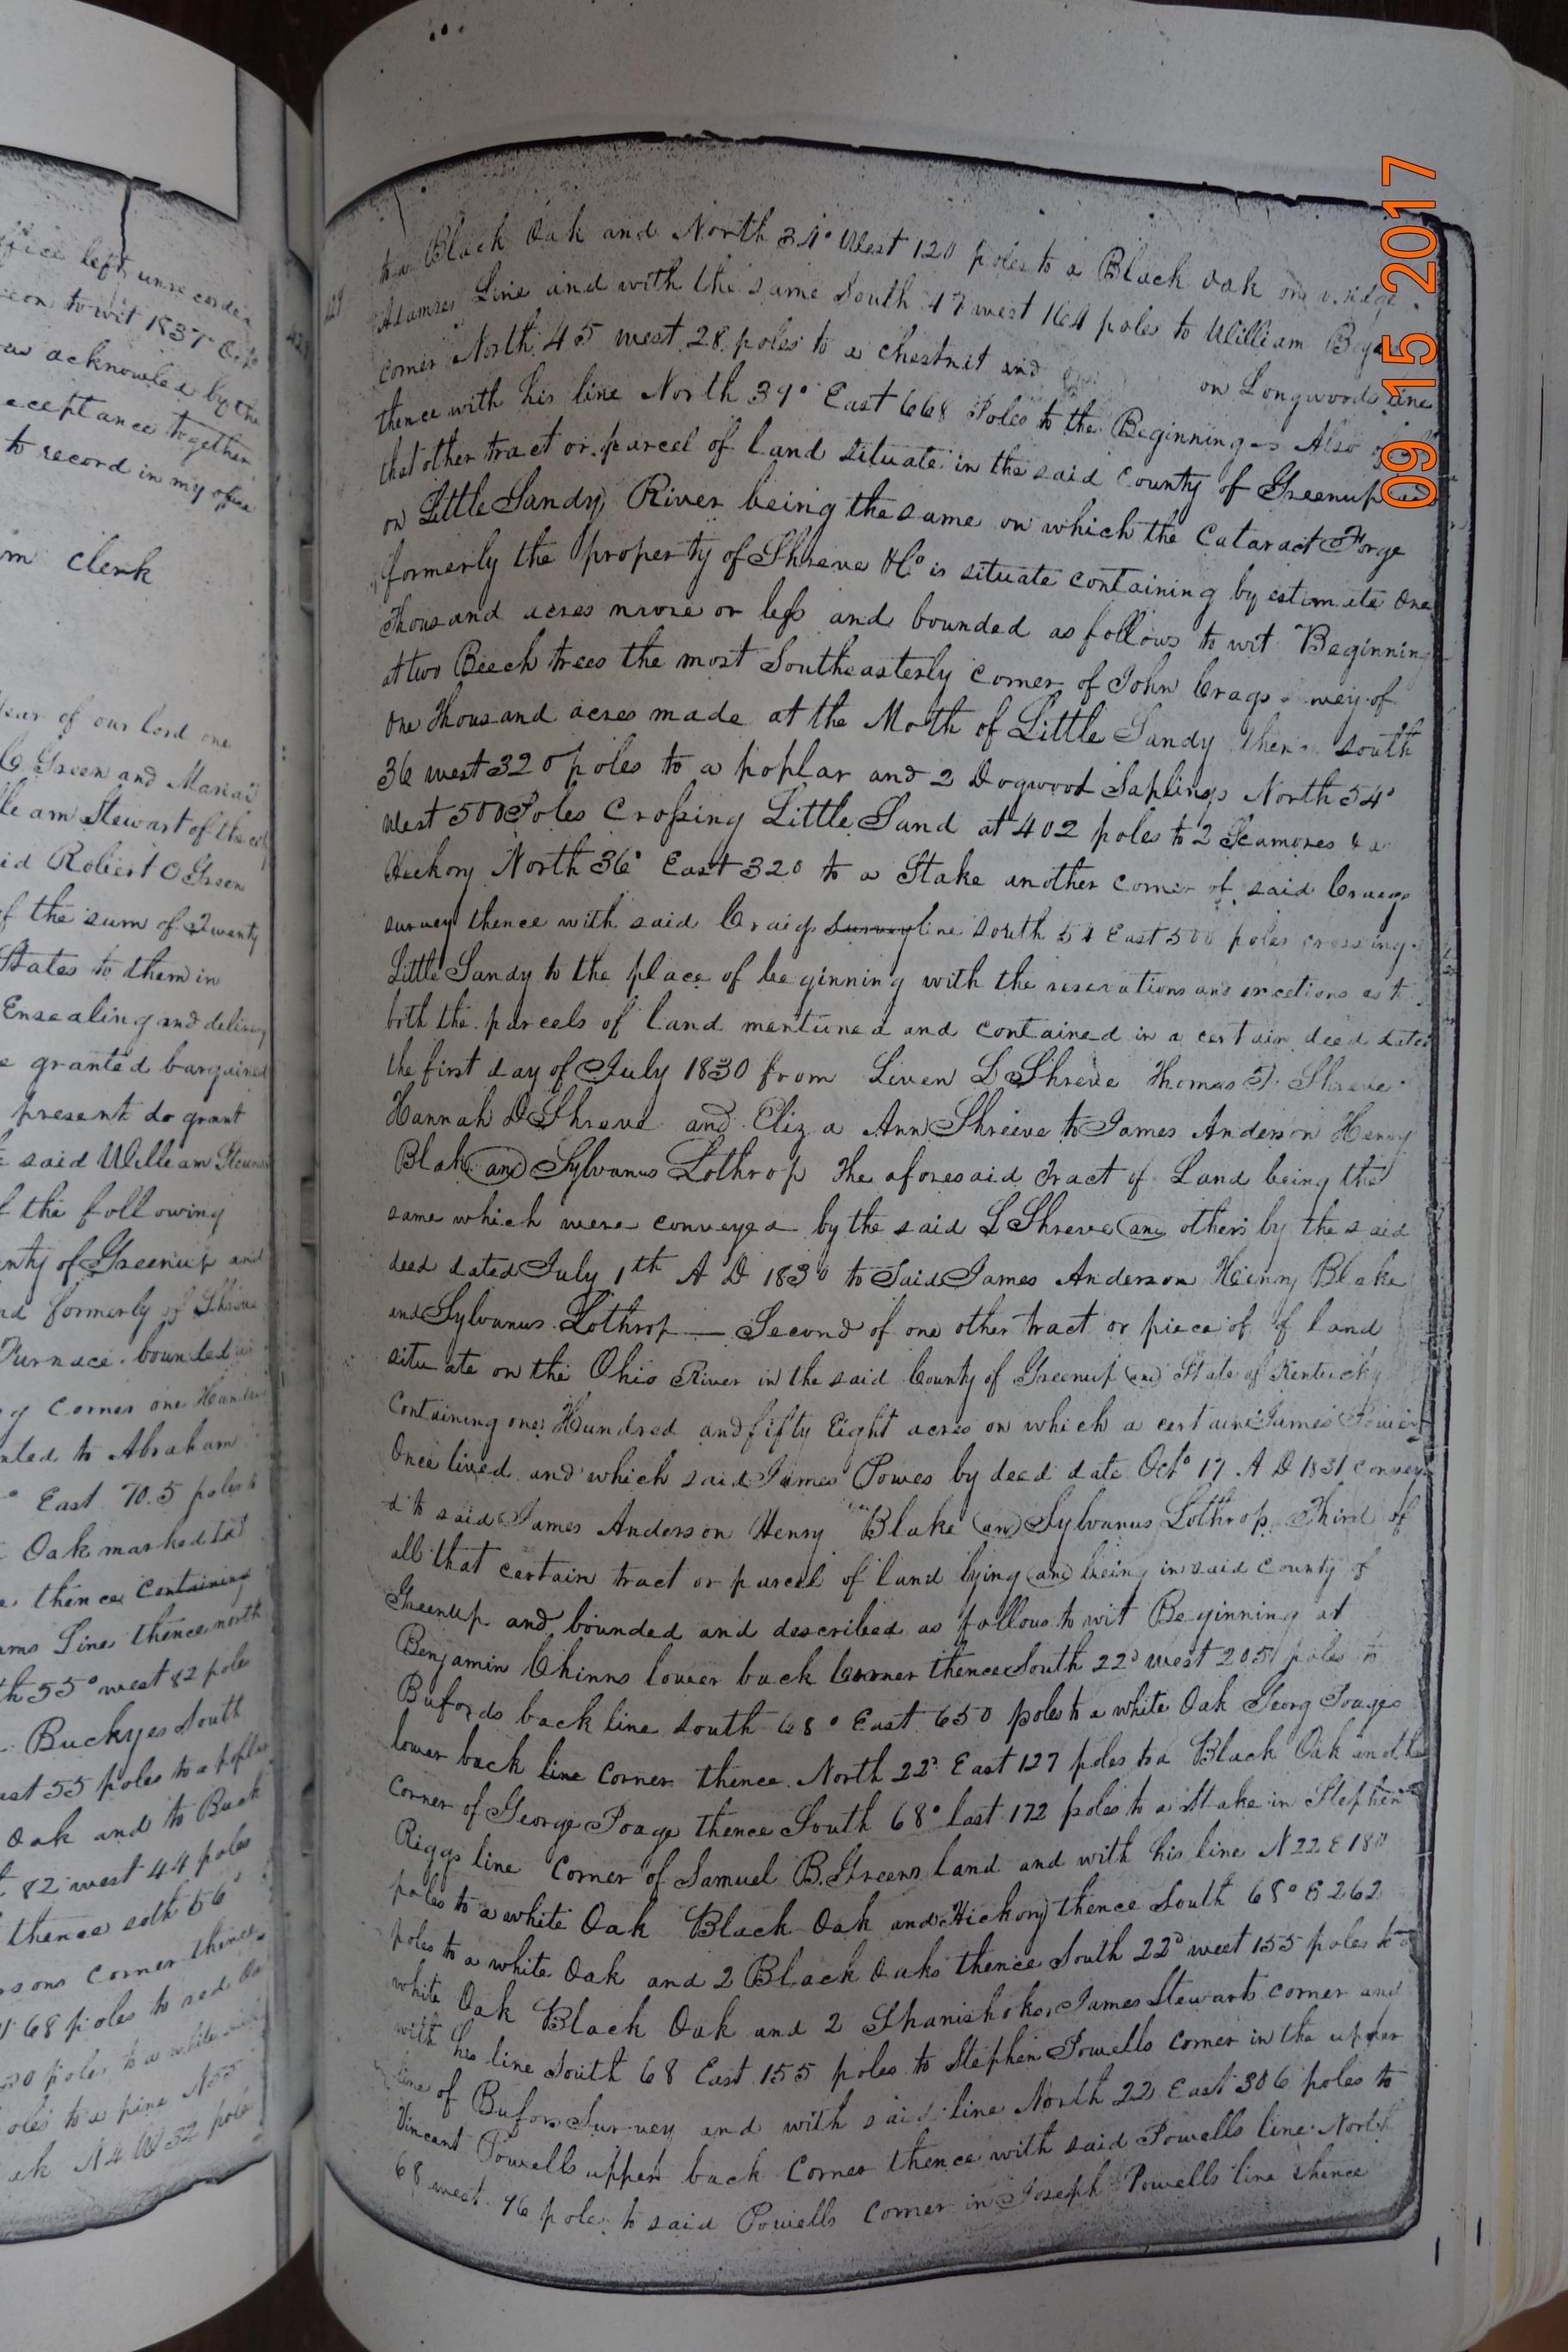 ffice left unrecorded
eon to wit 1837 Oct
was acknowled by the
eceptance together
to record in my office
m Clerk
Year of our lord one
C Green and Maria
lle am Stewart of the
id Robert O Green
f the sum of Twenty
States to them in
Ensealing and delivery
e granted bargained
present do grant
said Will am
f the following
unty of Greenup and
nd formerly of Shreve
Furnace bounded as
g Corner one Hundred
nted to Abraham
° East 70.5 poles to
Oak marked
thence Containing
ams Line thence north
th 55° west 82 poles
Buckyes South
ast 55 poles to a poplar
Oak and to Buck
82 west 44 poles
thence soth 56°
sons Corner thence
68 poles to red Oa
poles to a white
oles to a pine N55
ak N4 W 32 pole
to a Black Oak and North 34° West 120 poles to a Black Oak on a ridge
Adamses Line and with the same South 47 west 164 poles to William
corner North 45 west 28 poles to a chestnut and on Longwoods line
thence with his line North 39° East 668 Poles to the Beginning Also of
that other tract or parcel of land situate in the said County of Greenup
on Little Sandy River being the same on which the Cataract Forge
formerly the property of Shreve & Co is situate containing by estimate One
Thousand acres more or less and bounded as follows to wit Beginning
at two Beech trees the most Southeasterly corner of John Crags of
One Thousand acres made at the Moth of Little Sandy then South
36 west 320 poles to a poplar and 2 Dogwood Saplings North 54°
West 500 Poles Crossing Little Sand at 402 poles to 2 Scamores & a
Hickory North 36° East 320 to a Stake another corner of said Craigs
survey thence with said Craigs survey line South 54 East 500 poles crossing
Little Sandy to the place of beginning with the reservations and exections as to
both the parcels of land mentuned and contained in a certain deed dated
the first day of July 1830 from Liven L Shreve Thomas T. Shreve
Hannah D Shreve and Eliza Ann Shreeve to James Anderson Henry
Blake and Sylvanus Lothrop The aforesaid Tract of Land being the
same which were conveyed by the said L Shreve and others by the said
deed dated July 1th A D 1830 to Said James Anderson Henry Blake
and Sylvanus Lothrop — Second of one other tract or piece of of land
situate on the Ohio River in the said County of Greenup and State of Kentucky
Containing one Hundred and fifty Eight acres on which a certain James
Once lived and which said James Powes by deed date Octo 17 A D 1831 convey
d to said James Anderson Henry Blake and Sylvanus Lothrop Third of
all that certain tract or parcel of land lying and being in said County of
Greenup and bounded and described as follows to wit Beginning at
Benjamin Chinns lower back Corner thence South 22° west 205 poles to
Bufords back line South 68° East 650 poles to a white Oak Georg Poages
lower back line Corner thence North 22° East 127 poles to a Black Oak another
Corner of George Poage thence South 68° last 172 poles to a Stake in Stephen
Riggs line Corner of Samuel B. Greens land and with his line N 22 E 180
poles to a white Oak Black Oak and Hickory thence South 68° E 262
poles to a white Oak and 2 Black Oaks thence South 22° west 155 poles to a
white Oak Black Oak and 2 Spanishokes James Stewarts corner and
with his line South 68 East 155 poles to Stephen Powells corner in the upper
line of Bufors Survey and with said line North 22 East 306 poles to
Vincent Powells upper back Corner thence with said Powells line North
68 west 96 poles to said Powells Corner in Joseph Powells line thence
09 15 2017